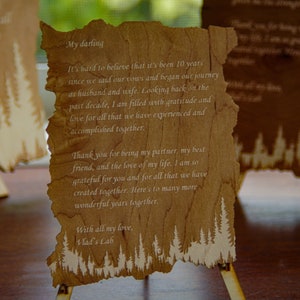 My darling
It's hard to believe that it's been 10 years
since we said our vows and began our journey
as husband and wife. Looking back on the
past decade, I am filled with gratitude and
love for all that we have experienced and
accomplished together.
Thank you for being my partner, my best
friend, and the love of my life. I am so
grateful for you and for all that we have
created together. Here's to many more
wonderful years together.
With all my love,
Vlad's Lab